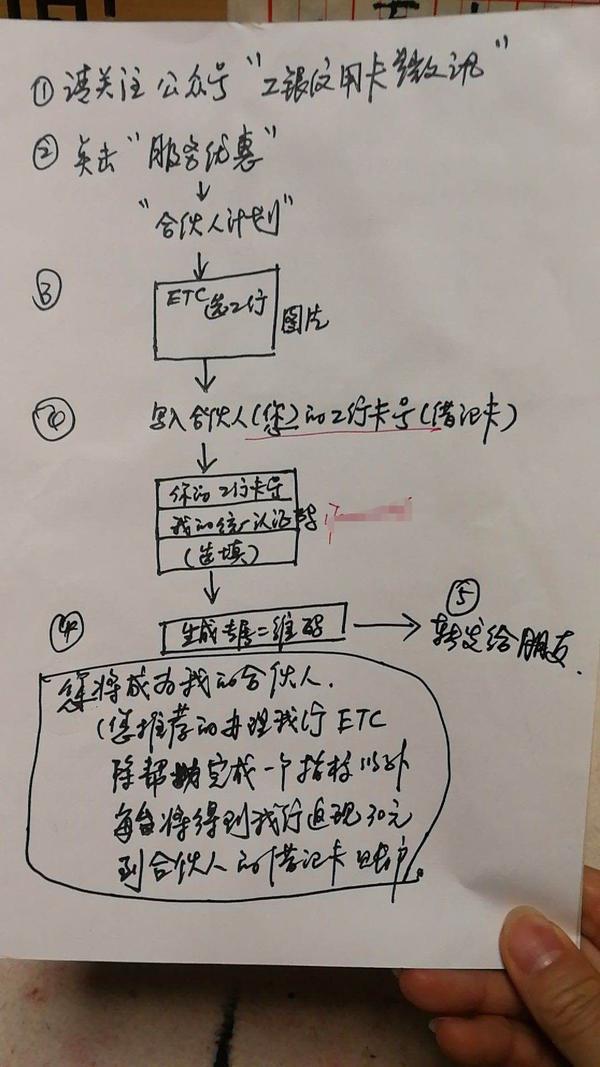 ① 请关注公众号"工银信用卡微讯"
② 点击"服务优惠"
"合伙人计划"
③
ETC 选工行
图片
④ 写入合伙人(您)的工行卡号(借记卡)
你的工行卡号
我的统一认证码
(选填)
④ 生成专属二维码
⑤
转发给朋友.
您将成为我的合伙人.
(您推荐的办理我行 ETC
除帮助完成一个指标以外
每台将得到我行返现30元
到合伙人的借记卡账户。